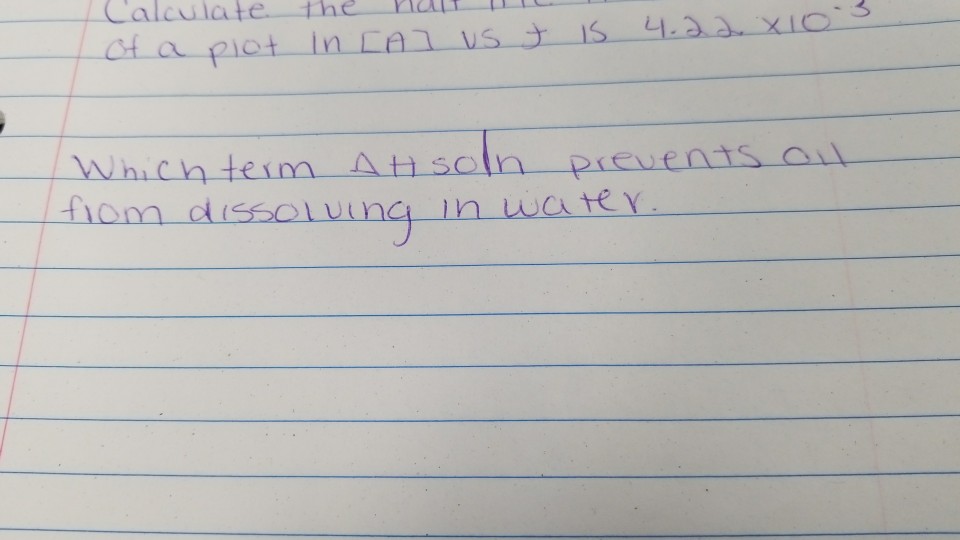 Calculate the half
of a plot ln [A] vs t is 4.22 x10⁻³
Which term ΔHsoln prevents oil
from dissolving in water.